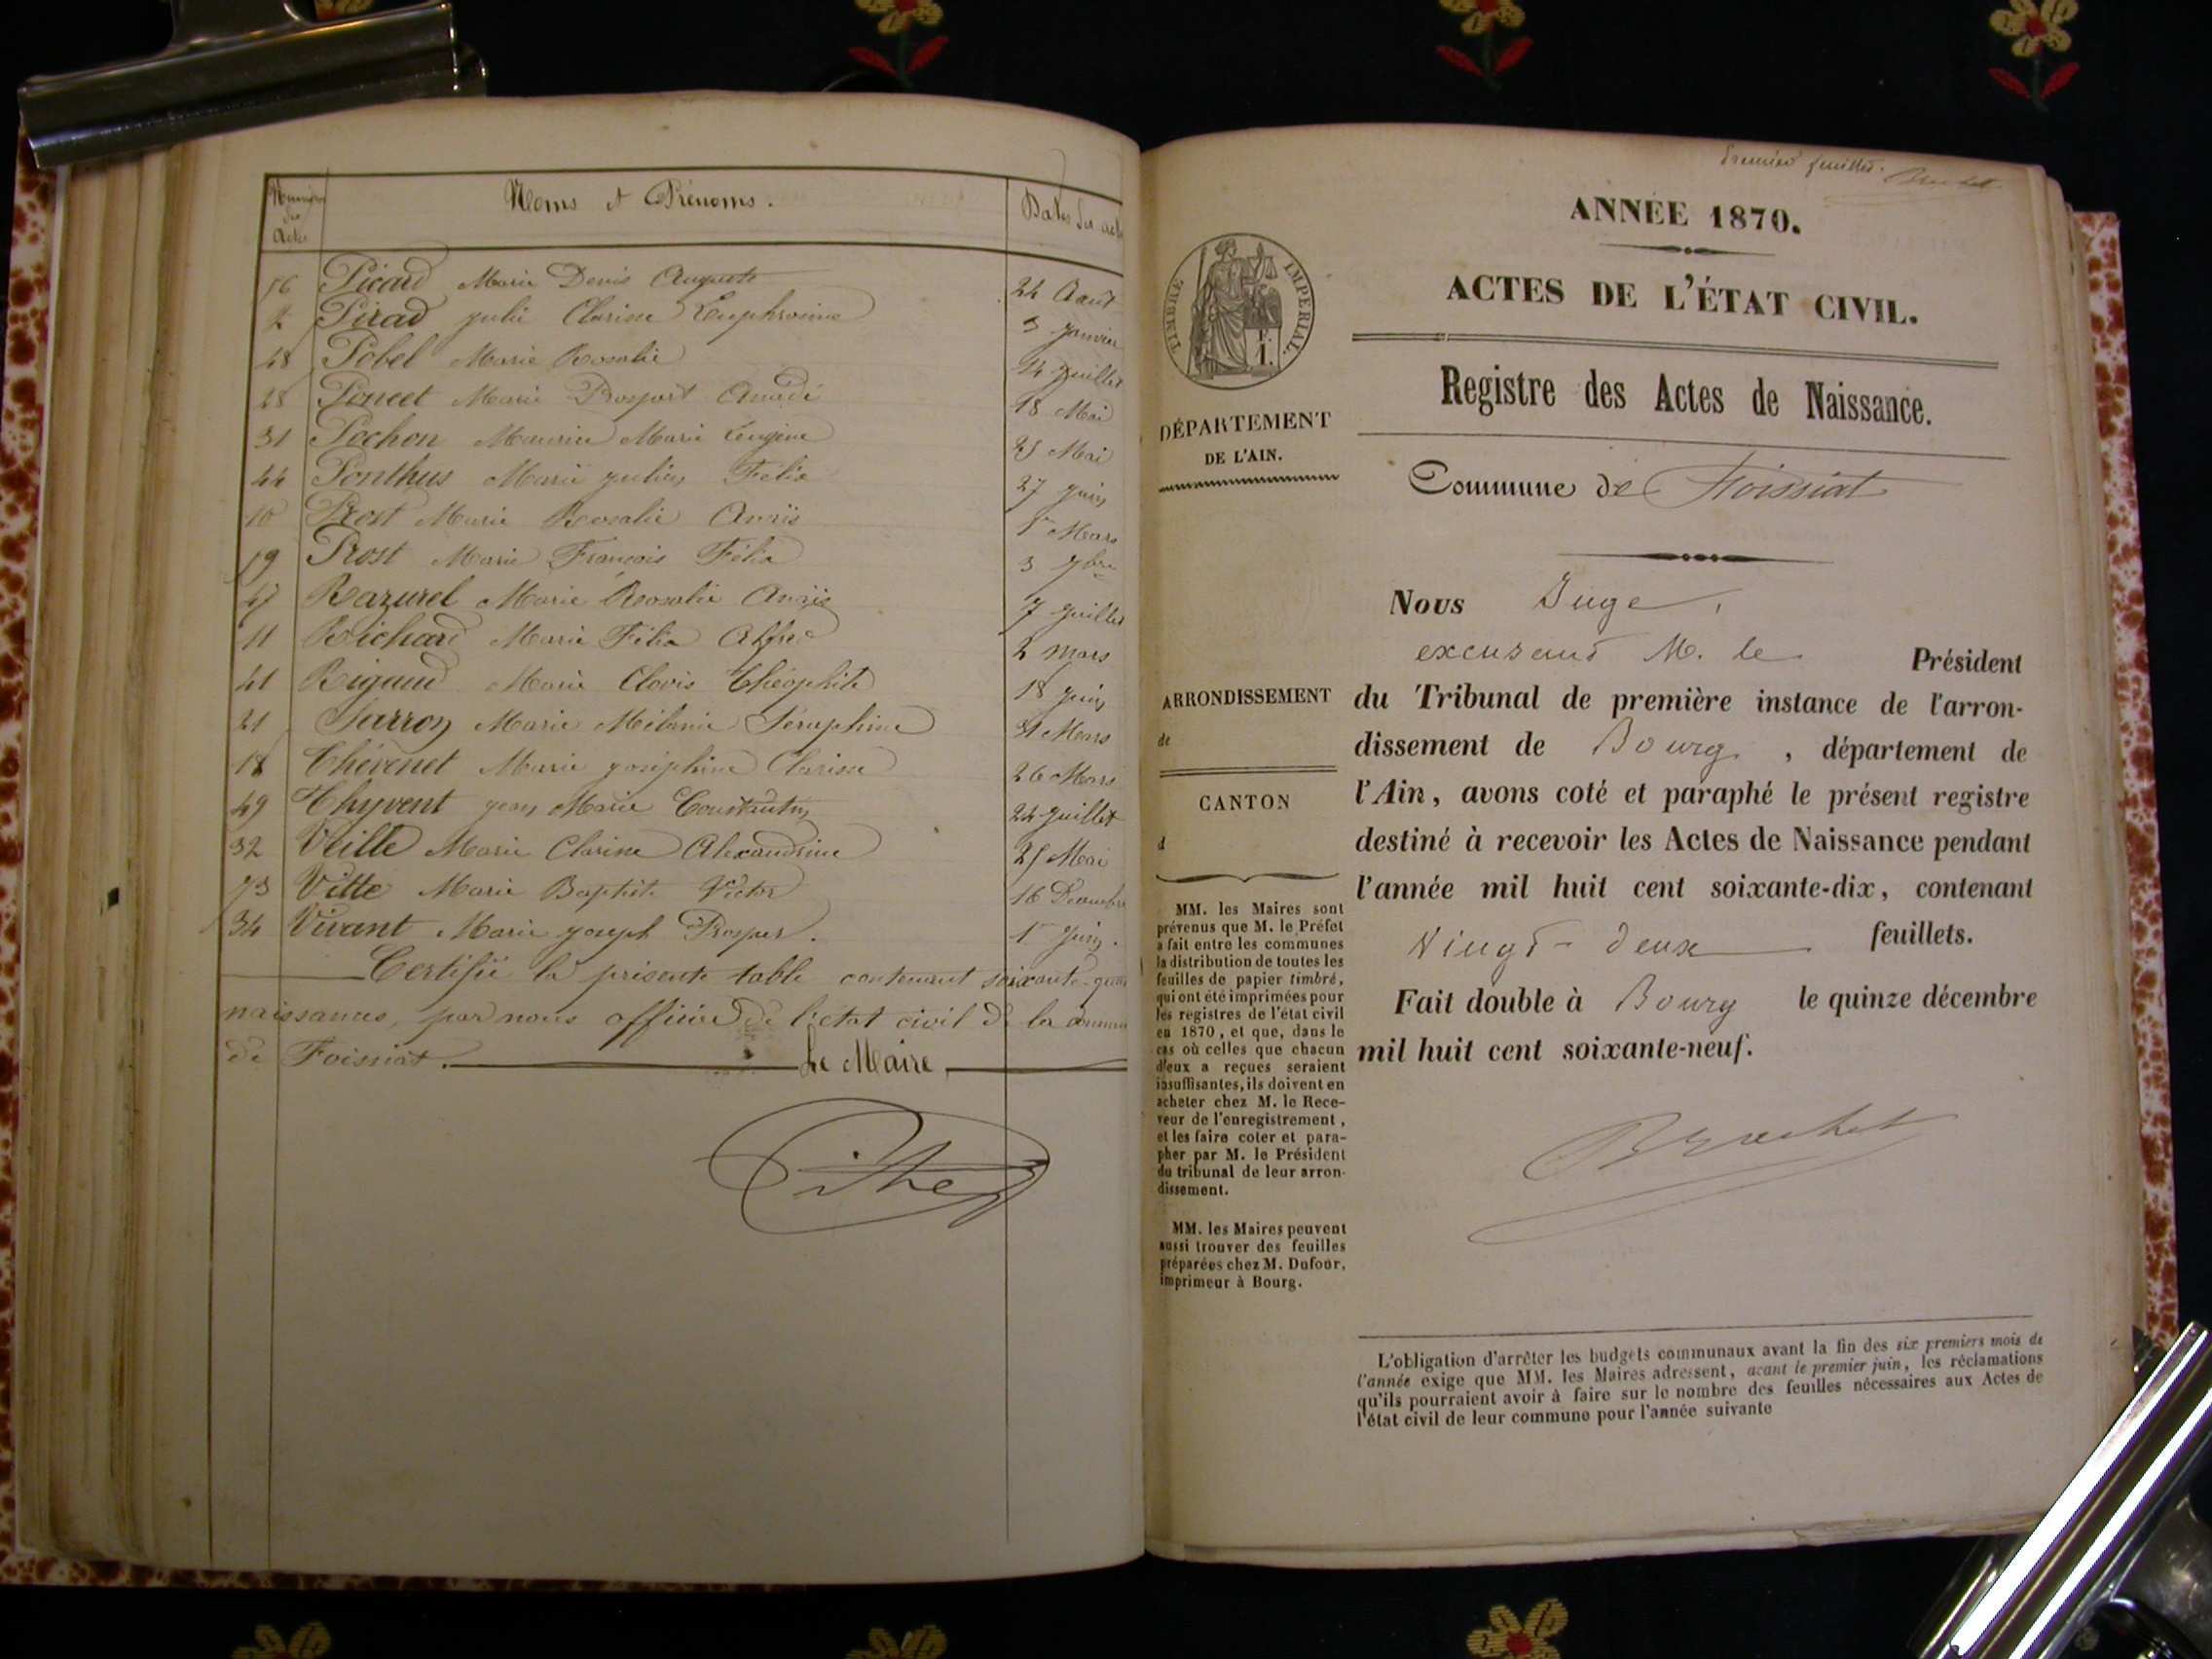 Numéro des Actes
Noms et Prénoms.
Dates des act
56 Picard Marie Denis Auguste 24 Aout
2 Pirad julie Clarisse Euphrosine 3 janvier
48 Pobel Marie Rosalie 14 juillet
28 Poncet Marie Prospert Amédé 18 Mai
31 Pochon Maurice Marie Eugène 25 Mai
44 Ponthus Marie julien Félix 27 juin
10 Prost Marie Rosalie Anaïs 1er Mars
59 Prost Marie François Félix 3 7bre
47 Razurel Marie Rosalie Anaïs 7 juillet
11 Richard Marie Félix Alfred 2 mars
41 Rigaud Marie Clovis Théophile 18 juin
21 Sarron Marie Mélanie Séraphine 31 Mars
18 Thévenet Marie joséphine Clarisse 26 Mars
49 Thyvent jean Marie Constantin 24 juillet
32 Veille Marie Clarisse Alexandrine 25 Mai
73 Vitte Marie Baptiste Victor 16 Décembre
34 Vivant Marie joseph Prosper. 1er juin.
Certifié la présente table contenant soixante
naissances, par nous officier de l'état civil de la
de Foissiat. Le Maire
Premier feuillet.
ANNÉE 1870.
ACTES DE L'ÉTAT CIVIL.
TIMBRE IMPERIAL.
Registre des Actes de Naissance.
DÉPARTEMENT
DE L'AIN.
Commune de Foissiat
Nous Juge,
excusant M. le Président
ARRONDISSEMENT
de
du Tribunal de première instance de l'arron-
dissement de Bourg, département de
l'Ain, avons coté et paraphé le présent registre
destiné à recevoir les Actes de Naissance pendant
l'année mil huit cent soixante-dix, contenant
Vingt-deux feuillets.
Fait double à Bourg le quinze décembre
mil huit cent soixante-neuf.
CANTON
d
MM. les Maires sont
prévenus que M. le Préfet
a fait entre les communes
la distribution de toutes les
feuilles de papier timbré,
qui ont été imprimées pour
les registres de l'état civil
en 1870, et que, dans le
cas où celles que chacun
d'eux a reçues seraient
insuffisantes, ils doivent en
acheter chez M. le Rece-
veur de l'enregistrement,
et les faire coter et para-
pher par M. le Président
du tribunal de leur arron-
dissement.
MM. les Maires peuvent
aussi trouver des feuilles
préparées chez M. Dufour,
imprimeur à Bourg.
L'obligation d'arrêter les budgets communaux avant la fin des six premiers mois de
l'année exige que MM. les Maires adressent, avant le premier juin, les réclamations
qu'ils pourraient avoir à faire sur le nombre des feuilles nécessaires aux Actes de
l'état civil de leur commune pour l'année suivante